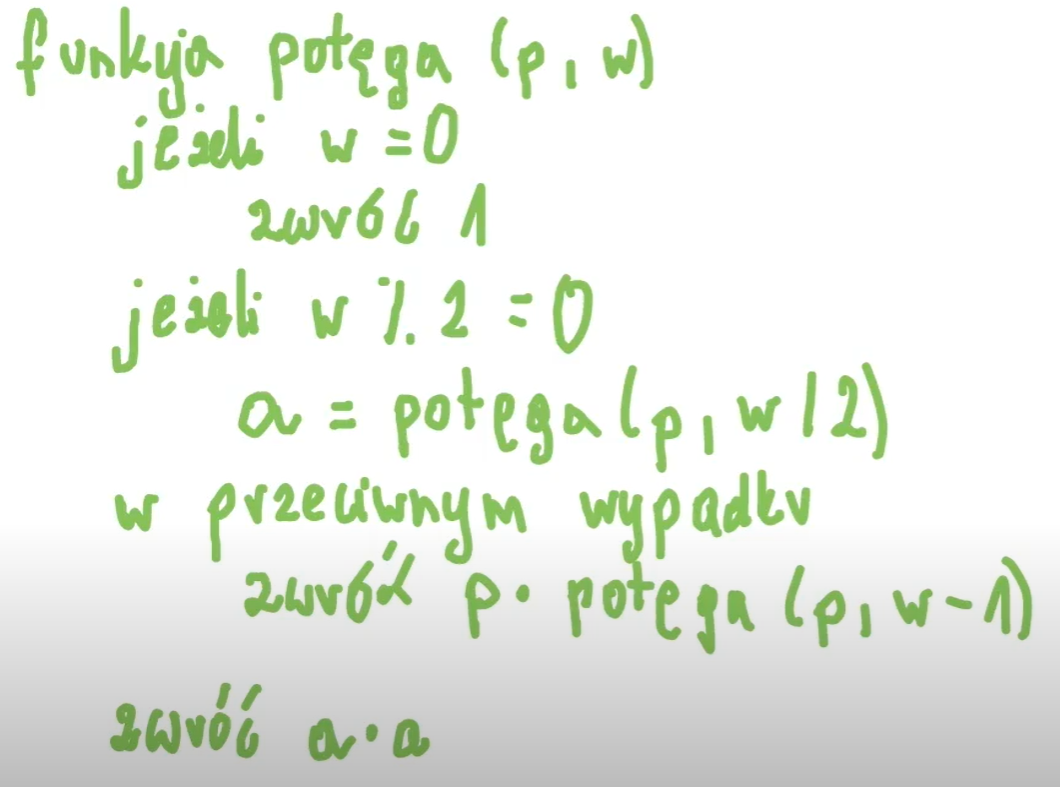 funkcja potęga (p, w)
jeżeli w = 0
zwróć 1
jeżeli w % 2 = 0
a = potęga(p, w/2)
w przeciwnym wypadku
zwróć p · potęga (p, w-1)
zwróć a · a